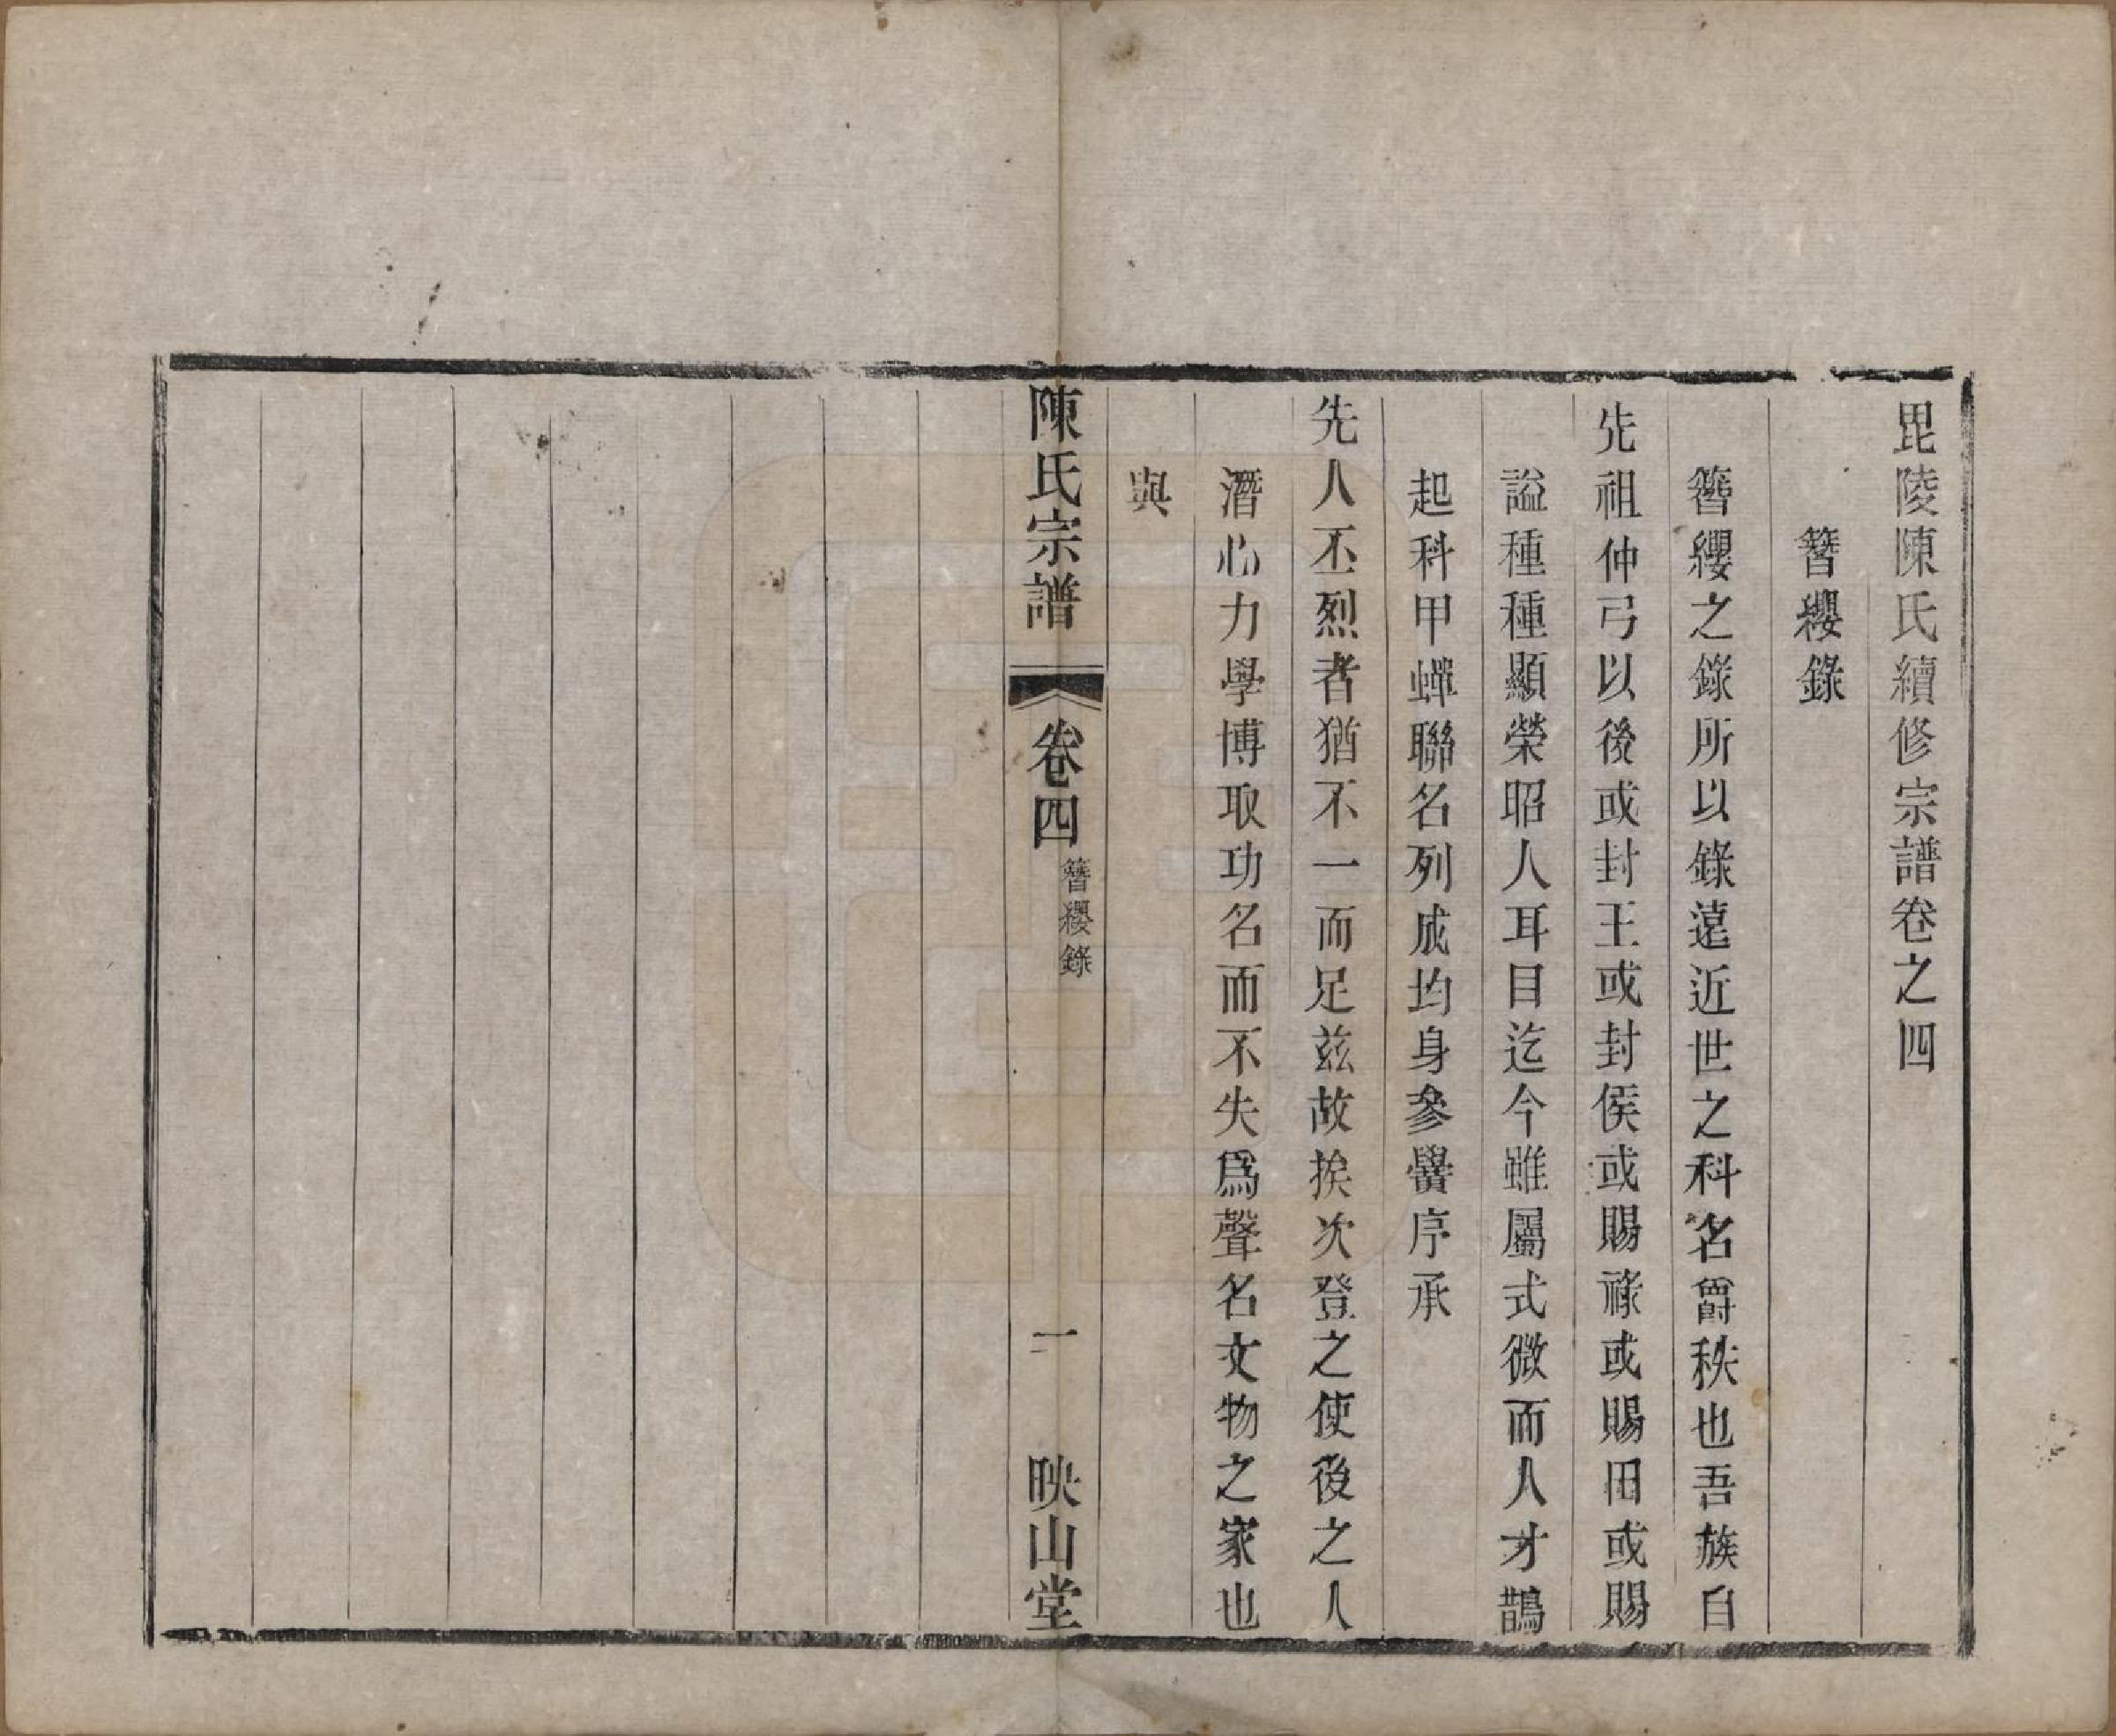 毘陵陳氏續修宗譜卷之四
簪纓錄
簪纓之錄所以錄遠近世之科名爵秩也吾族自
先祖仲弓以後或封王或封侯或賜祿或賜田或賜
謚種種顯榮昭人耳目迄今雖屬式微而人才鵲
起科甲蟬聯名列成均身參黌序承
先人丕烈者猶不一而足茲故挨次登之使後之人
潛心力學博取功名而不失爲聲名文物之家也
與
陳氏宗譜
卷四
簪纓錄
一
映山堂